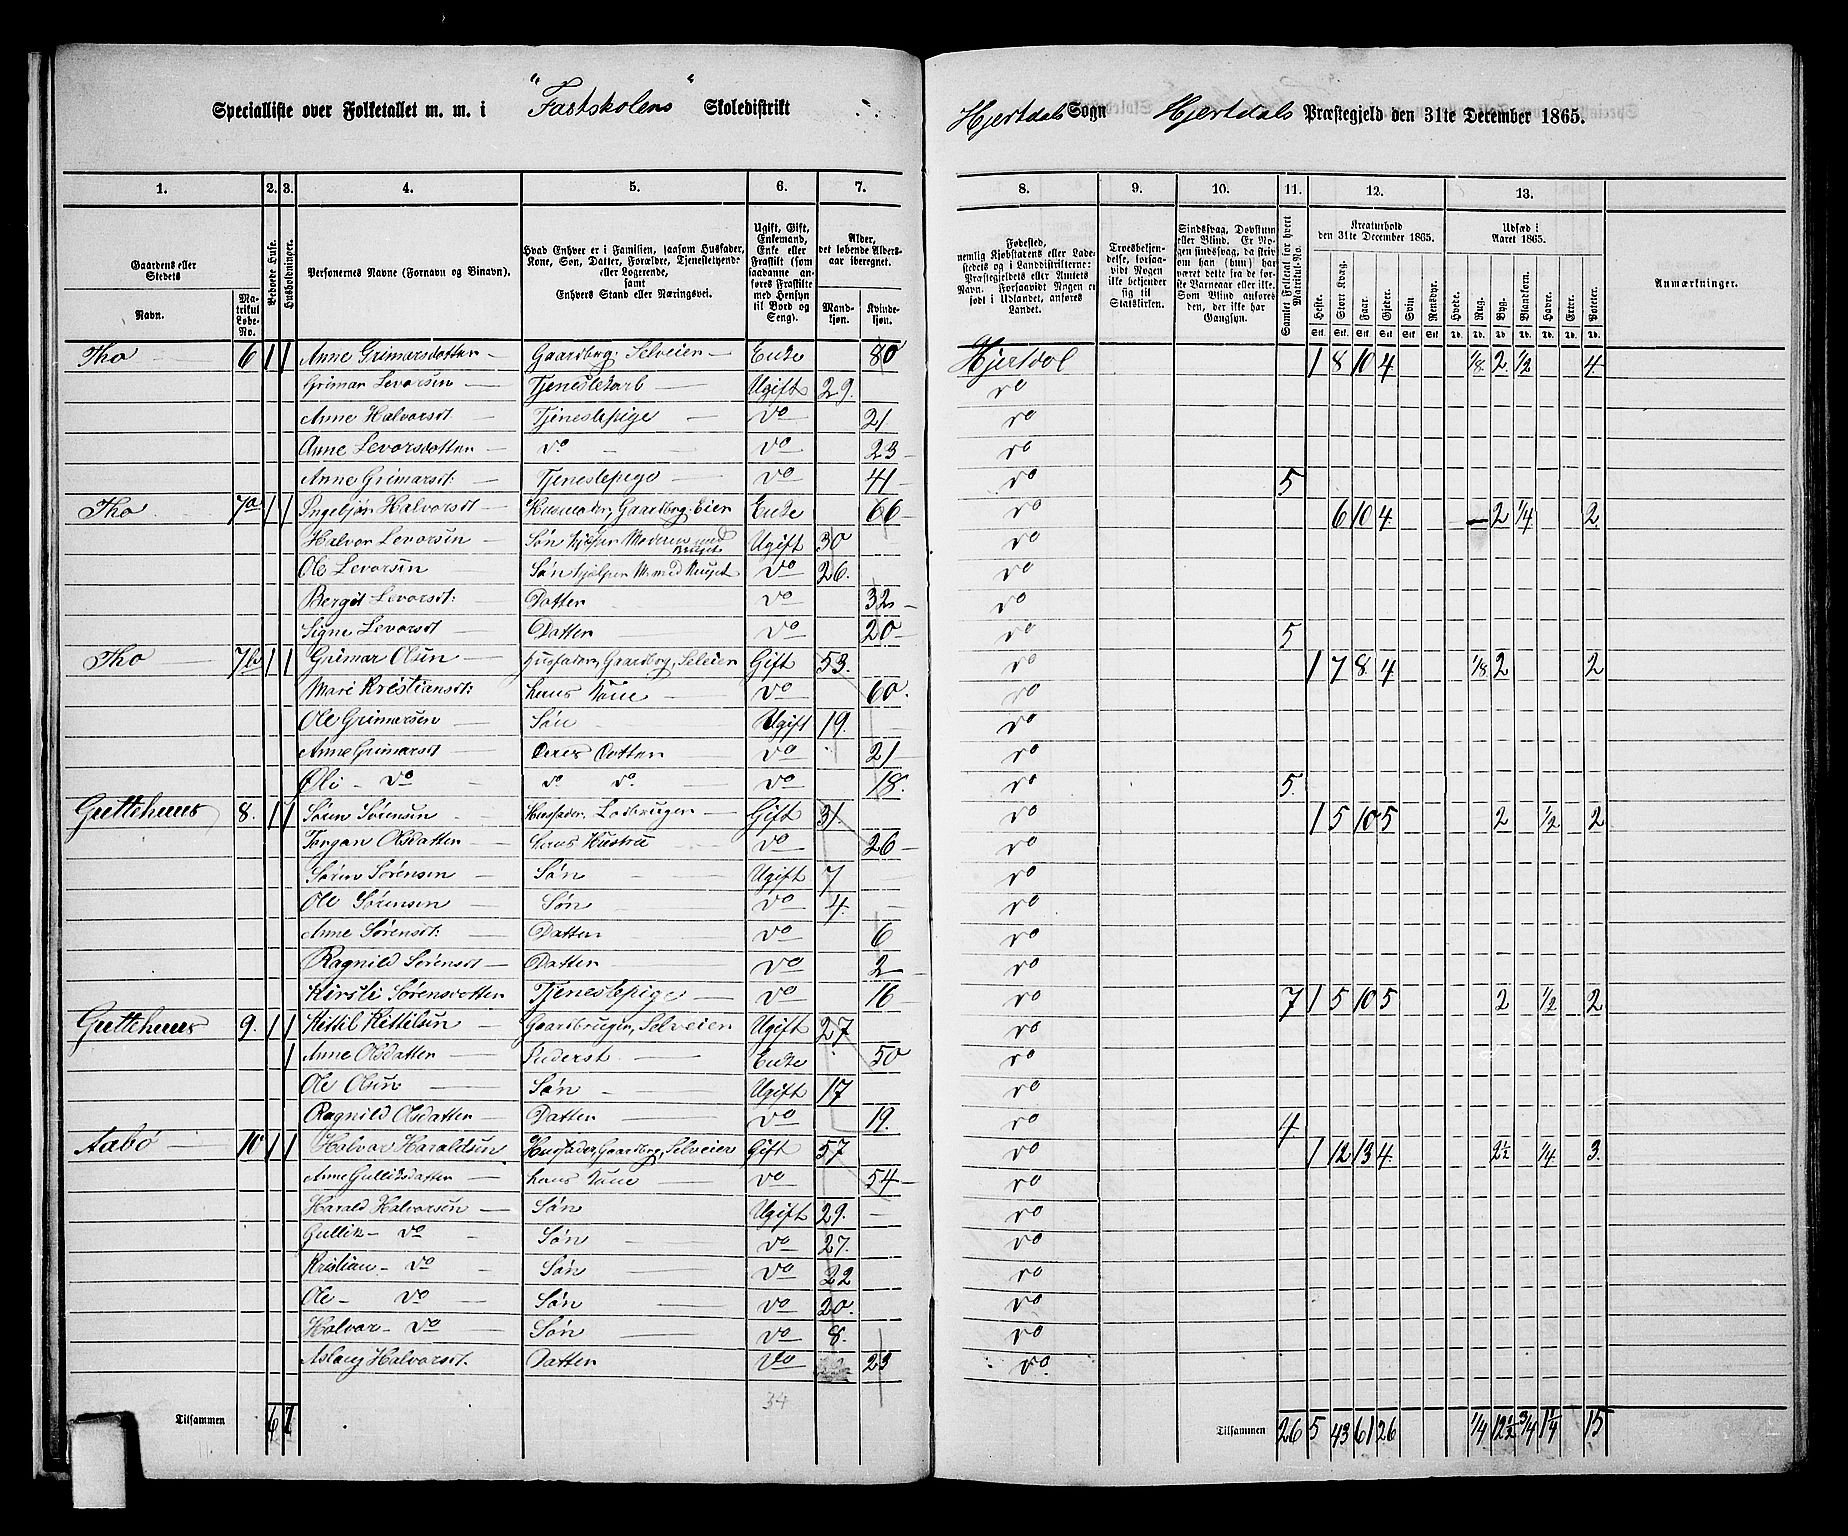 Specialliste over Folketallet m. m. i "Fastskolens" Skoledistrikt Hjertdals Sogn Hjertdals Præstegjeld den 31te December 1865.
1. 2. 3. 4. 5. 6. 7. 8. 9. 10. 11. 12. 13.
Gaardens eller Stedets Navn. Matrikul Løbe-No. Beboede Huse. Husholdninger. Personernes Navne (Fornavn og Binavn). Hvad Enhver er i Familien, saasom Husfader, Kone, Søn, Datter, Forældre, Tjenestetyende eller Logerende, samt Enhvers Stand eller Næringsvei. Ugift, Gift, Enkemand, Enke eller Fraskilt (som saadanne anføres Fraskilte med Hensyn til Bord og Seng). Alder, det løbende Aldersaar iberegnet. Mandkjøn. Kvindekjøn. Fødested, nemlig Kjøbstadens eller Ladestedets og i Landdistrikterne: Præstegjeldets eller Amtets Navn. Forsaavidt Nogen er født i Udlandet, anføres Landet. Troesbekjendelse, forsaavidt Nogen ikke bekjender sig til Statskirken. Sindssvag, Døvstum eller Blind. Er Nogen sindssvag, da skriv om han (hun) har været dette fra de første Barneaar eller ikke. Som Blind anføres den, der ikke har Gangsyn. Samlet Folketal for hvert Matrikul-No. Kreaturhold den 31te December 1865. Heste. Stort Kvæg. Faar. Gjeder. Svin. Rensdyr. Udsæd i Aaret 1865. Hvede. Rug. Byg. Blandkorn. Havre. Erter. Poteter. Anmærkninger.
Tho 6 1 1 Anne Grimarsdatter Gaardbrg. Selveier Enke 80 Hjertdal 1 8 10 4 1/8 2 1/2 4
Grimar Levorsen Tjenestekarl Ugift 29. do
Anne Halvorsdt Tjenestepige do 21 do
Anne Levorsdatter do do 23 do
Anne Grimarsdt: Tjenestepige do 41 do 5
Tho 7a 1 1 Ingebjør Halvorsdt Husmoder, Gaardbrg. Eier Enke 66 do 6 10 4 2 1/4 2
Halvor Levorsen Søn hjælper Moderen med Bruget Ugift 30 do
Ole Levorsen Søn hjælper M. med Bruget do 26. do
Bergit Levorsdt: Datter do 32 do
Signe Levorsdt Datter do 20 do 5
Tho 7b 1 1 Grimar Olsen Husfader, Gaardbrg, Selveier Gift 53. do 1 7 8 4 1/8 2 2
Mari Kristiansdt: hans Kone do 60. do
Ole Grimarsen Søn Ugift 19. do
Anne Grimarsdt Deres Datter do 21 do
do do do do 18. do 5
Grettehuus 8. 1 1 Søren Sørensen Husfader. Gift 31. do 1 5 10 5 2 1/2 2
Jorgan Olsdatter Hans Hustru do 26 do
Søren Sørensen Søn Ugift 7 do
Ole Sørensen Søn do 4. do
Anne Sørensdt: Datter do 6 do
Ragnild Sørensdt Datter do 2 do
Kirsti Sørensdatter Tjenestepige do 16 do 7 1 5 10 5 2 1/2 2
Grettehuus 9. 1 1 Kittil Kittilsen Gaardbruger, Selveier Ugift 27 do
1 Anne Olsdatter Inderst Enke 50 do
Ole Olsen Søn Ugift 17 do
Ragnild Olsdatter Datter do 19. do 4.
Aabø 10 1 1 Halvor Haraldsen Husfader, Gaardbrg, Selveier Gift 57 do 1 12 13 4. 2½ 1/4 3.
Anne Gulliksdatter hans Kone do 54 do
Harald Halvorsen Søn Ugift 29. do
Gullik do Søn do 27. do
Kristian do Søn do 22 do
Ole do Søn do 20. do
Halvor do Søn do 8. do
Aslaug Halvorsdt. Datter do 23 do
34
Tilsammen 6 7 Tilsammen 26 5 43 61 26 1/4 12½ 3/4 1¼ 15